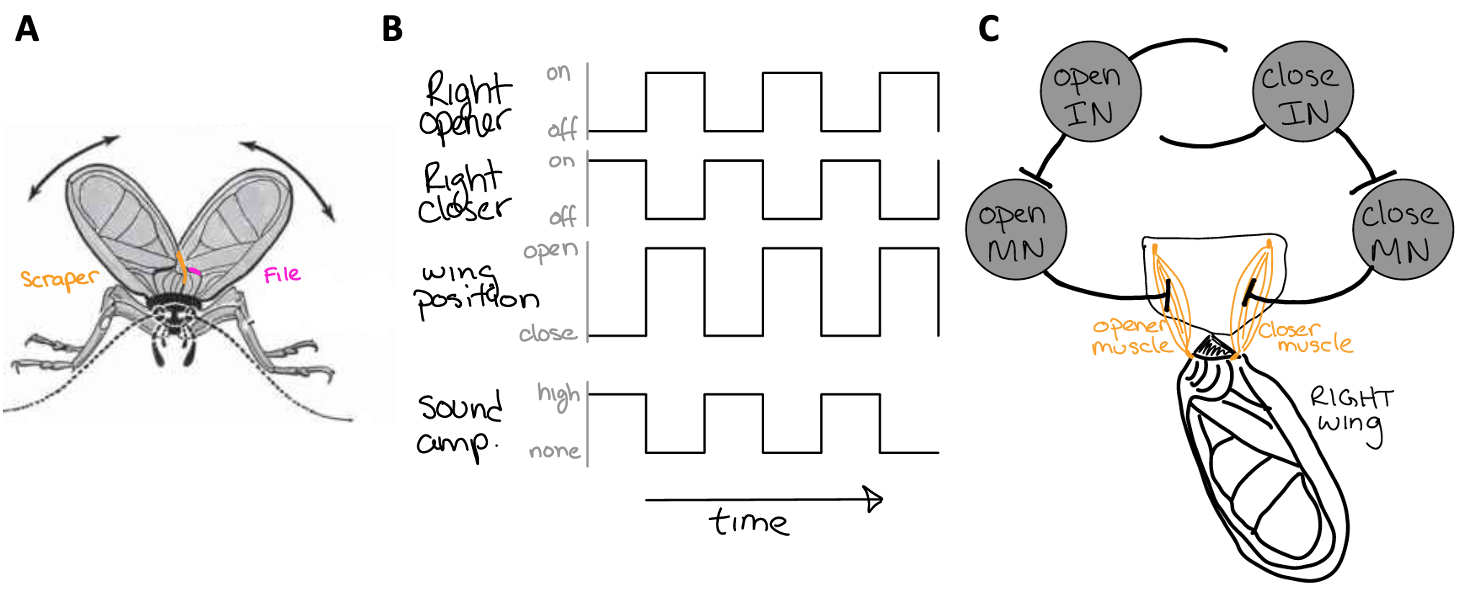 A
Scraper
File
B
Right
opener
on
off
Right
closer
on
off
wing
position
open
close
Sound
amp.
high
none
time
C
open
IN
close
IN
open
MN
close
MN
opener
muscle
closer
muscle
RIGHT
wing